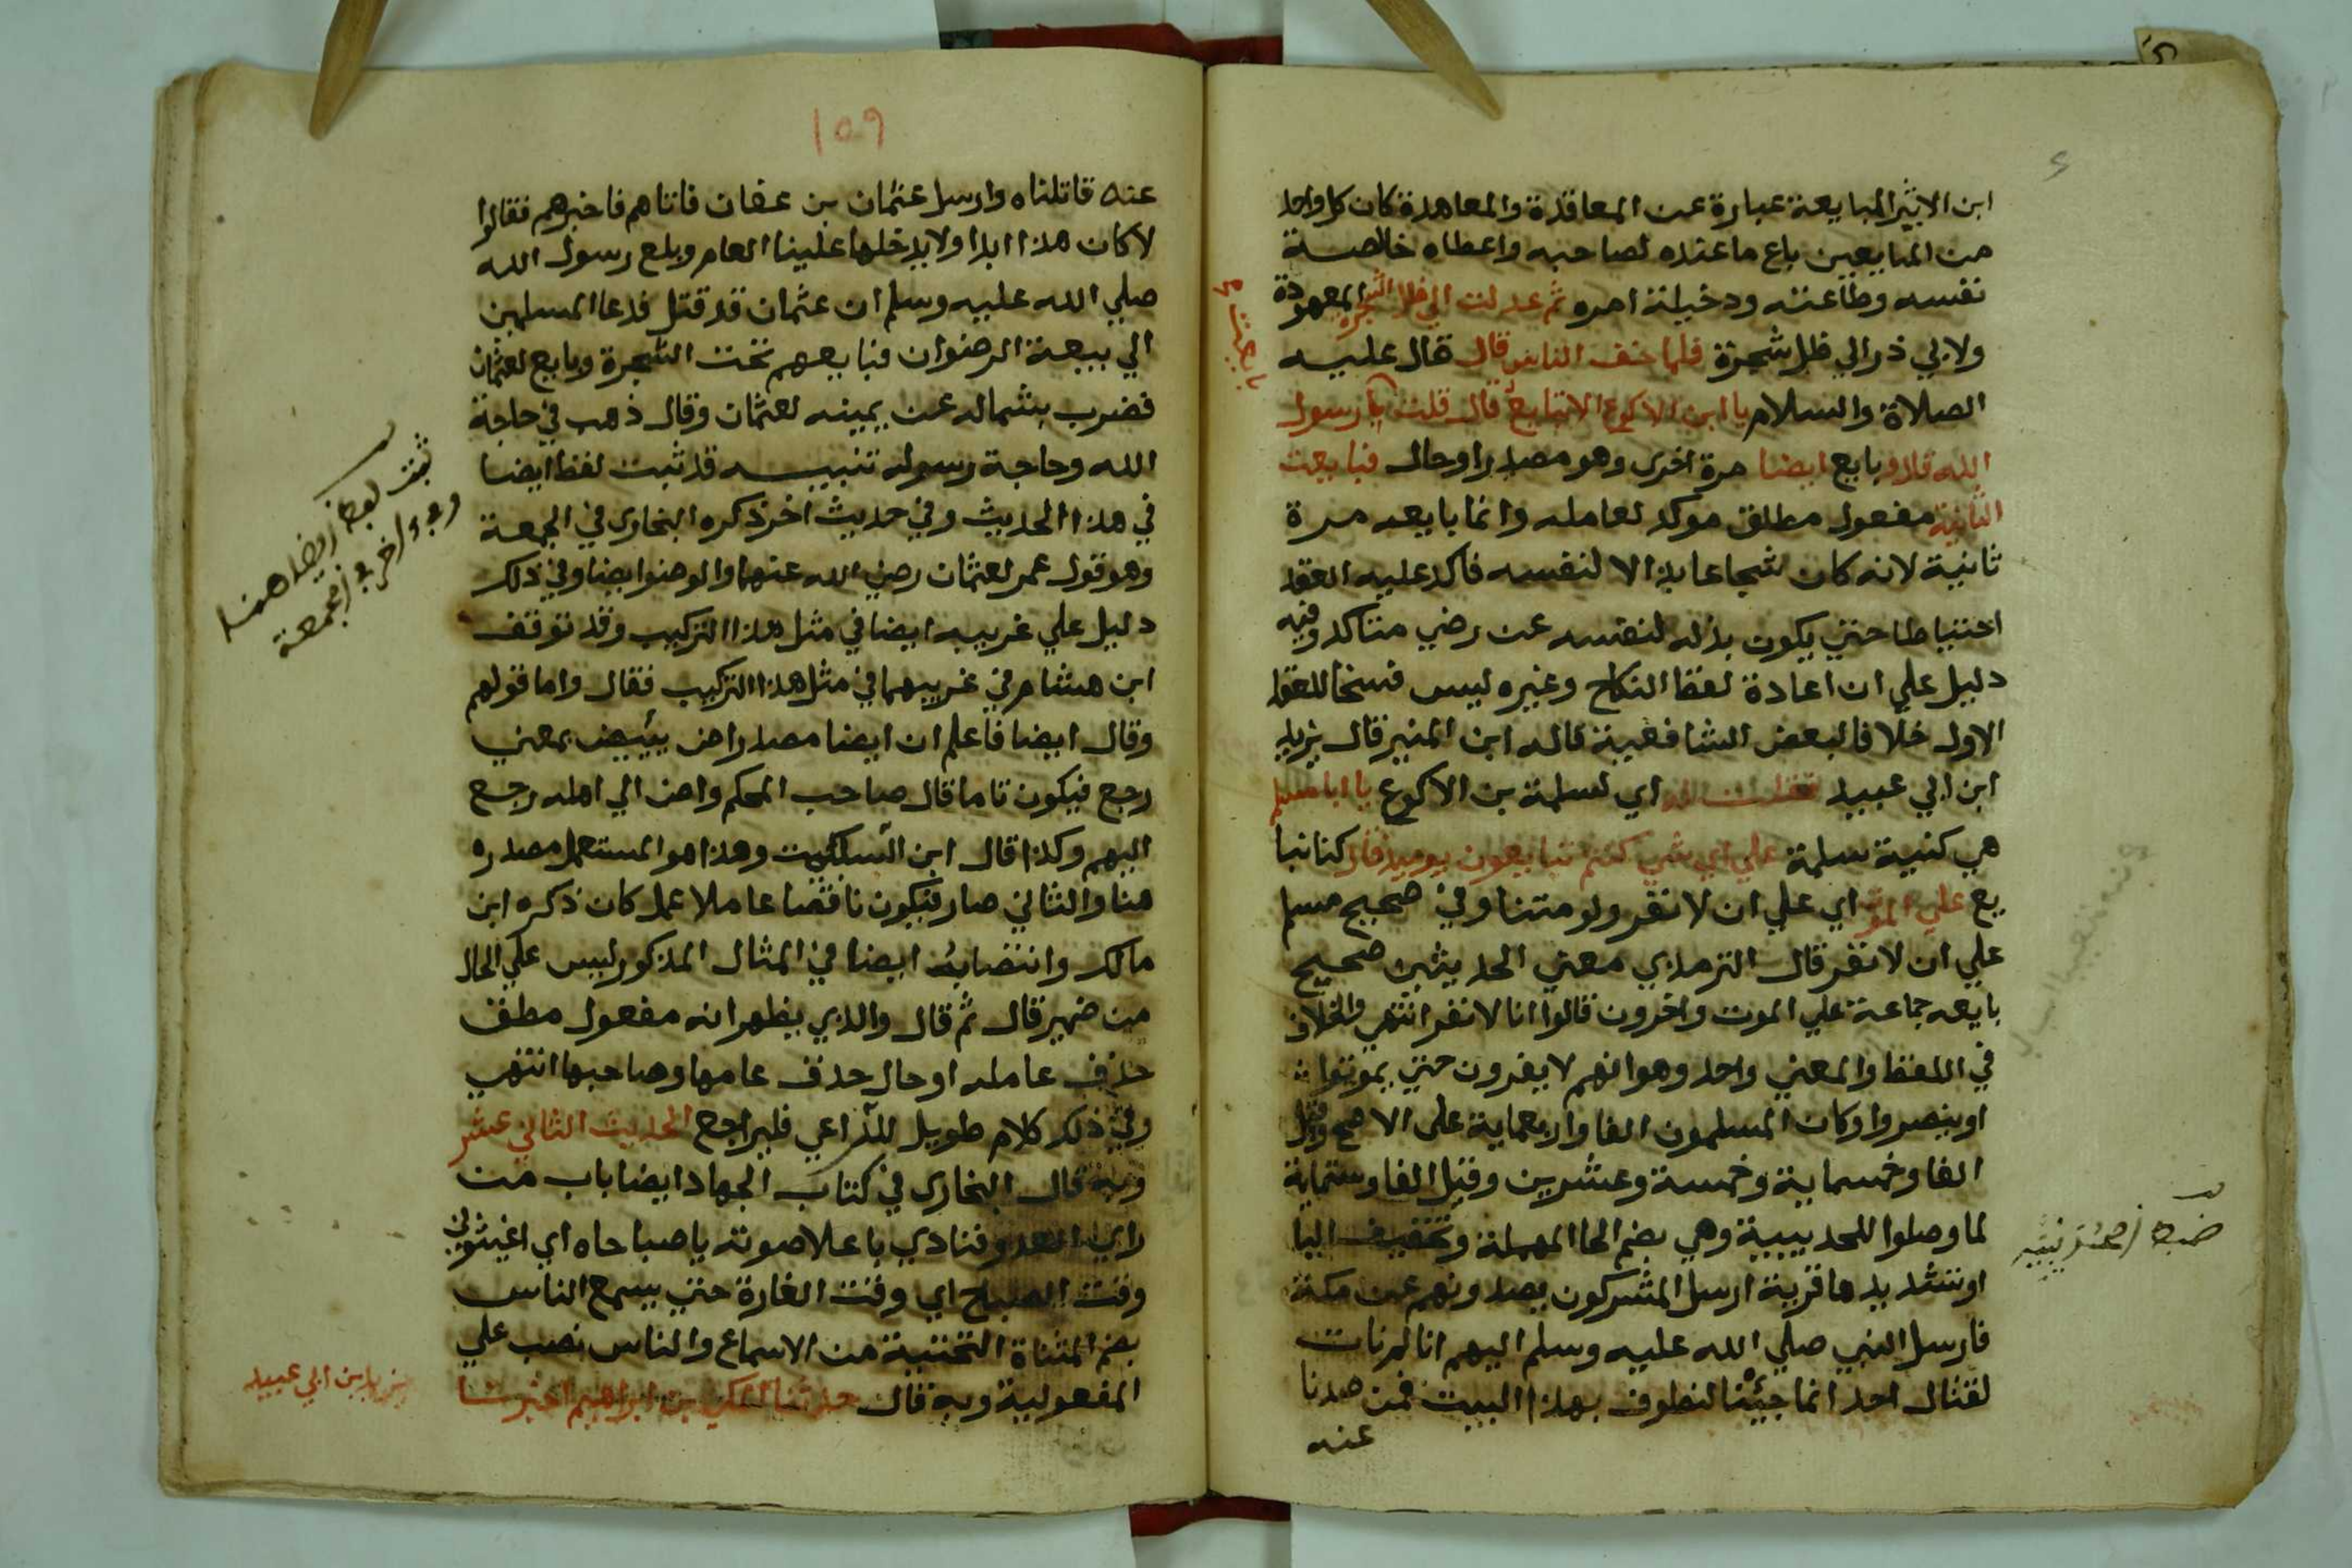 ابن الاثير المبايعة عبارة عن المعاقدة والمعاهدة كان كل واحد
من المبايعين باع ما عنده لصاحبه واعطاه خالصة
نفسه وطاعته ودخيلة امره ثم عدلت الي ظل الشجرة المعهودة
ولابي ذر الي ظل شجرة فلما خف الناس قال قال عليه
الصلاة والسلام يا ابن الاكوع الا تبايع قال قلت يا رسول
الله قال و بايع ايضا مرة اخري وهو مصدر او حال فبايعت
الثانية مفعول مطلق موكد لعامله وانما بايعه مرة
ثانية لانه كان شجاعا بذالا لنفسه فاكد عليه العقد
احتياطا حتي يكون بذله لنفسه عن رضي متاكد وفيه
دليل علي ان اعادة لفظ النكاح وغيره ليس فسخا للعقد
الاول خلافا لبعض الشافعية قاله ابن المنير قال يزيد
ابن ابي عبيد فقلت له اي لسلمة بن الاكوع يا ابا مسلم
هي كنية سلمة علي اي شي كنتم تبايعون يوميذ قال كنا نبا
يع علي الموت اي علي ان لا نفر ولو متنا وفي صحيح مسلم
علي ان لا نفر قال الترمذي معني الحديثين صحيح
بايعه جماعة علي الموت واخرون قالوا انا لا نفر انتهي والخلاف
في اللفظ والمعني واحد وهو انهم لا يفرون حتي يموتوا
او ينصروا وكان المسلمون الفا واربعماية علي الاصح وقيل
الفا وخمسماية وخمسة وعشرين وقيل الفا وستماية
لما وصلوا للحديبية وهي بضم الحا المهملة وتخفيف اليا
او تشديدها قرية ارسل المشركون يصدونهم عن مكة
فارسل النبي صلي الله عليه وسلم اليهم انا لم نات
لقتال احد انما جئنا لنطوف بهذا البيت فمن صدنا
عنه
١٥٩
عنه قاتلناه وارسل عثمان بن عفان فاتاهم فاخبرهم فقالوا
لا كان هذا ابدا ولا يدخلها علينا العام وبلغ رسول الله
صلي الله عليه وسلم ان عثمان قد قتل فدعا المسلمين
الي بيعة الرضوان فبايعهم تحت الشجرة وبايع لعثمان
فضرب بشماله عن يمينه لعثمان وقال ذهب في حاجة
الله وحاجة رسوله تنبيه قد ثبت لفظ ايضا
في هذا الحديث وفي حديث اخر ذكره البخاري في الجمعة
وهو قول عمر لعثمان رضي الله عنهما والوضو ايضا وفي ذلك
دليل علي غريبه ايضا في مثل هذا التركيب وقد توقف
ابن هشام في غريبهما في مثل هذا التركيب فقال واما قولهم
وقال ايضا فاعلم ان ايضا مصدر اض يئيض بمعني
رجع فيكون تاما قال صاحب المحكم واض الي اهله رجع
اليهم وكذا قال ابن السكيت وهذا هو المستعمل مصدره
هنا والثاني صار فيكون ناقضا عاملا عمل كان ذكره ابن
مالك وانتصابه ايضا في المثال المذكور ليس علي الحال
من ضمير قال ثم قال والذي يظهر انه مفعول مطلق
حذف عامله او حال حذف عاملها وصاحبها انتهي
وفي ذلك كلام طويل للراعي فليراجع الحديث الثاني عشر
وبه قال البخاري في كتاب الجهاد ايضا باب من
راي العدو فنادي باعلا صوته يا صباحاه اي اغيثوني
وقت الصباح اي وقت الغارة حتي يسمع الناس
بضم المثناة التحتية من الاسماع والناس نصب علي
المفعولية وبه قال حدثنا المكي بن ابراهيم اخبرنا
يزيد بن ابي عبيد
ثبت لفظ ايضا هنا